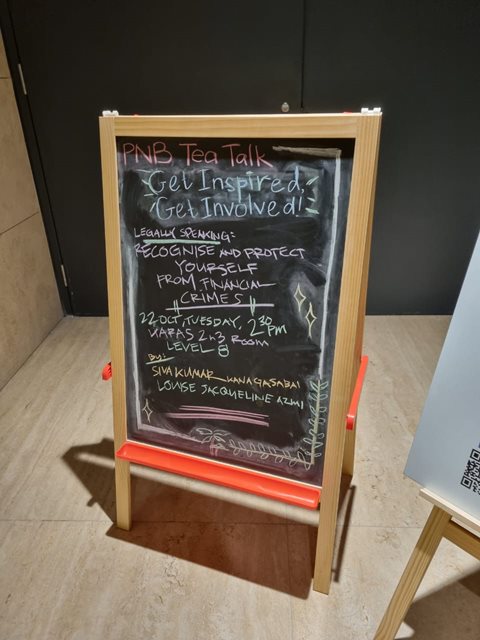 PNB Tea Talk
Get Inspired,
Get Involved!
LEGALLY SPEAKING:
RECOGNISE AND PROTECT
YOURSELF
FROM FINANCIAL
CRIMES
22 OCT, TUESDAY, 2.30 PM
KARAS 2 n 3 ROOM
LEVEL 8
By:
SIVA KUMAR KANAGASABAI
LOUISE JACQUELINE AZMI